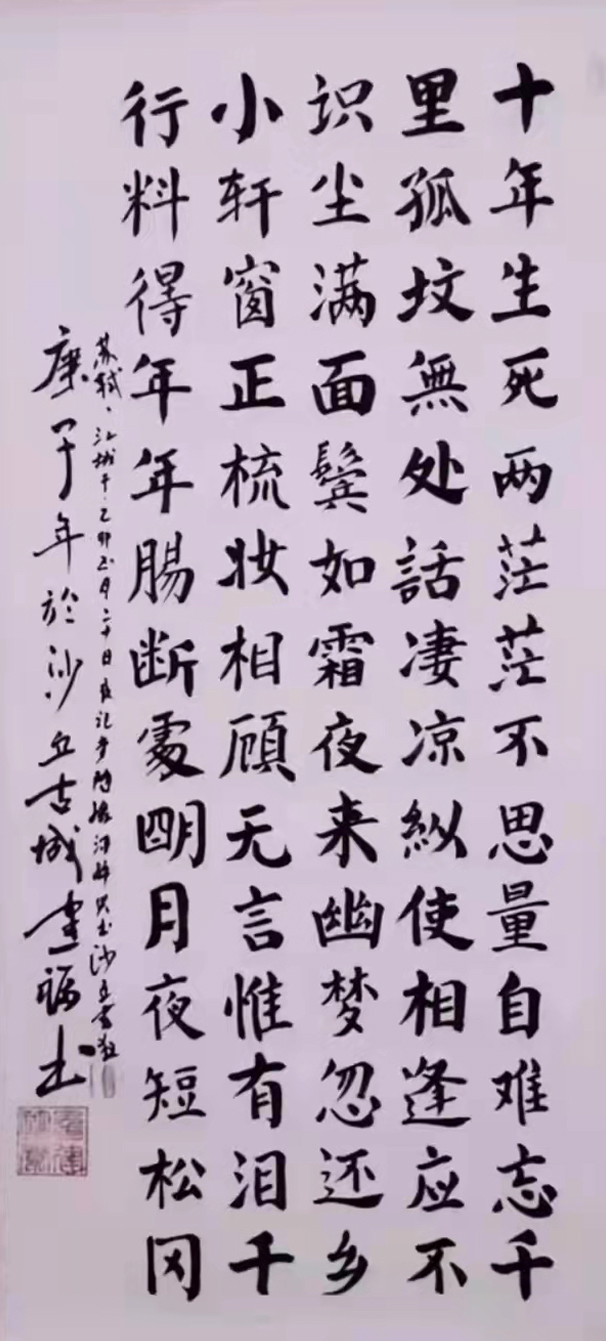 十年生死两茫茫不思量自难忘千
里孤坟無处話凄凉纵使相逢应不
识尘满面鬓如霜夜来幽梦忽还乡
小轩窗正梳妆相顾无言惟有泪千
行料得年年腸断處明月夜短松冈
苏轼、江城子·乙卯正月二十日夜记梦
庚子年於沙丘古城